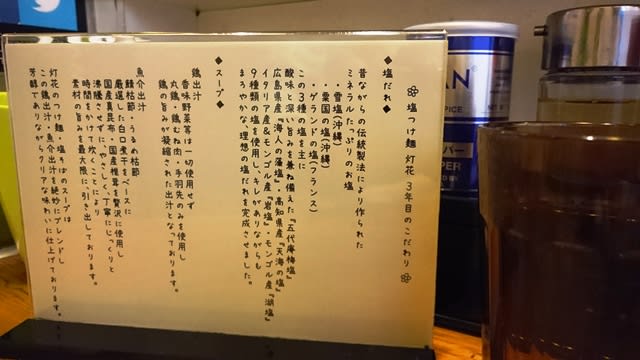 塩つけ麺 灯花 3年目のこだわり
◆塩だれ◆
昔ながらの伝統製法により作られた
ミネラルたっぷりのお塩
・雪塩(沖縄)
・粟国の塩(沖縄)
・ゲランドの塩(フランス)
この3種の塩を主に
酸味と深い旨みを兼ね備えた『五代庵梅塩』
広島県産『海人の藻塩』高知県産『天海の塩』
イタリア産&モンゴル産『岩塩』・モンゴル産『湖塩』
9種類の塩を使用し、キレがありながらも
まろやかな理想の塩だれを完成させました。
◆スープ◆
鶏出汁
香味野菜等は一切使用せず
丸鶏・鶏むね肉・手羽先のみを使用し
鶏の旨みが凝縮された出汁となっております。
魚介出汁
鯖枯節・うるめ枯節
厳選した白口煮干をベースに
国産真昆布・国産椎茸を贅沢に使用し
沸騰させずに、やさしく、丁寧にじっくりと
時間をかけて炊くことにより
素材の旨みを最大限に引き出しております。
灯花のつけ麺・塩そばのスープは
この鶏出汁・魚介出汁を絶妙にブレンドし
芳醇でありながらクリアな味わいに仕上げております。
AN
PICE
パー
PER